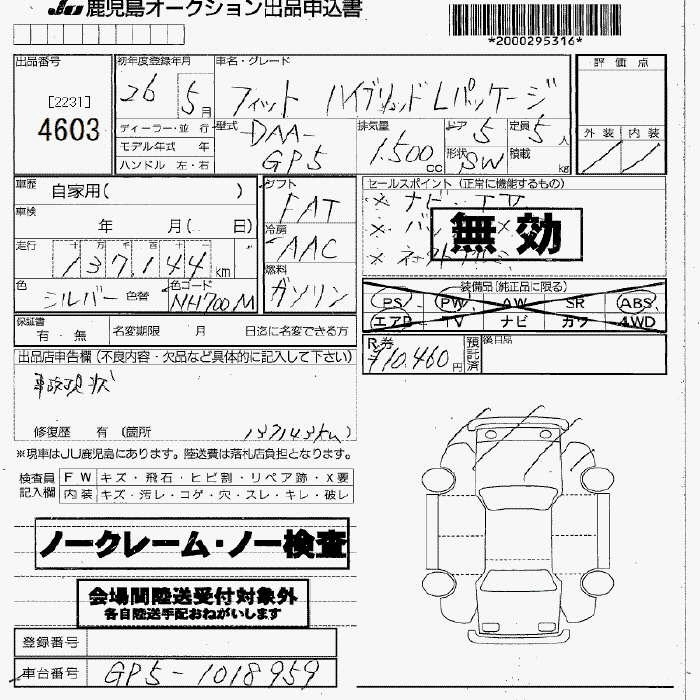 JU 鹿児島オークション出品申込書
*2000295316*
出品番号 初年度登録年月 車名・グレード 評価点
[2231]
4603
26 5月 フィット ハイブリッド Lパッケージ
ディーラー・並 行
モデル年式 年
ハンドル 左・右
型式 DAA-GP5
排気量 1.500 cc
ドア 5 定員 5 人
形状 SW 積載 kg
外装 内装
車歴 自家用( )
車検 年 月( 日)
走行 十 万 千 百 十 一
137,144 km
色 シルバー 色替 色コード NH700M
シフト FAT
冷房 AAC
燃料 ガソリン
セールスポイント (正常に機能するもの)
※ ナビ・TV
※
※
無効
装備品(純正品に限る)
PS PW AW SR ABS
エアB TV ナビ カワ 4WD
保証書 有・無 名変期限 月 日迄に名変できる方
R券 ¥10,460円 預託済 後日品
出品店申告欄(不良内容・欠品など具体的に記入して下さい)
事故現状
修復歴 有 (箇所 137143km
※現車はJU鹿児島にあります。陸送費は落札店負担となります。
検査員記入欄
FW キズ・飛石・ヒビ割・リペア跡・X要
内装 キズ・汚レ・コゲ・穴・スレ・キレ・破レ
ノークレーム・ノー検査
会場間陸送受付対象外
各自陸送手配おねがいします
登録番号
車台番号 GP5-1018959